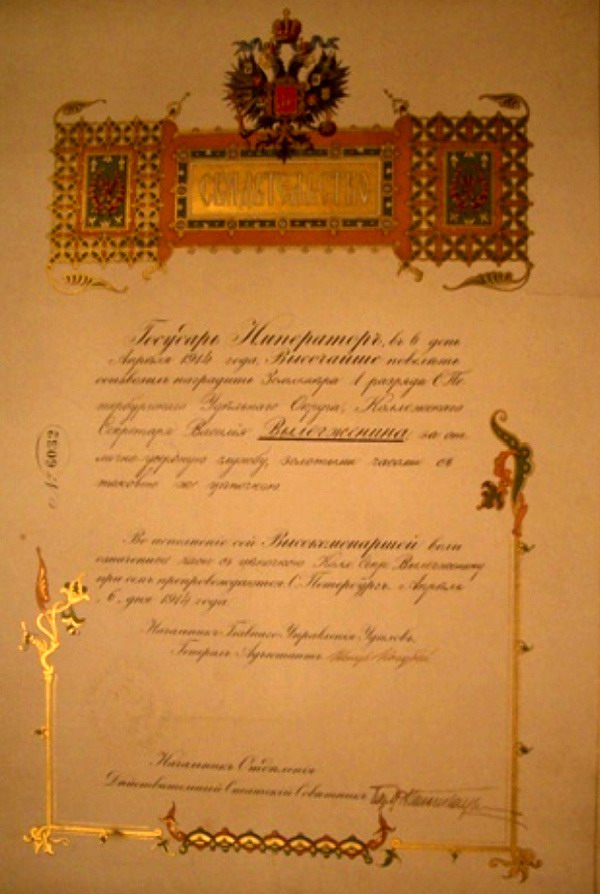 СВИДѢТЕЛЬСТВО
Государь Императоръ, въ 6 день
Апрѣля 1914 года, Высочайше повелѣть
соизволилъ наградить Землемѣра 1 разряда С.Пе-
тербургскаго Удѣльнаго Округа, Коллежскаго
Секретаря Василія за от-
лично-усердную службу, золотыми часами съ
таковою же цѣпочкою.
№ 6032
Во исполненіе сей Высокомонаршей воли
означенные часы съ цѣпочкою Колл. Секр.
при семъ препровождаются. С.Петербургъ. Апрѣля
6 дня 1914 года.
Начальникъ Главнаго Управленія Удѣловъ,
Генералъ-Адъютантъ
Начальникъ Отдѣленія
Дѣйствительный Статскій Совѣтникъ